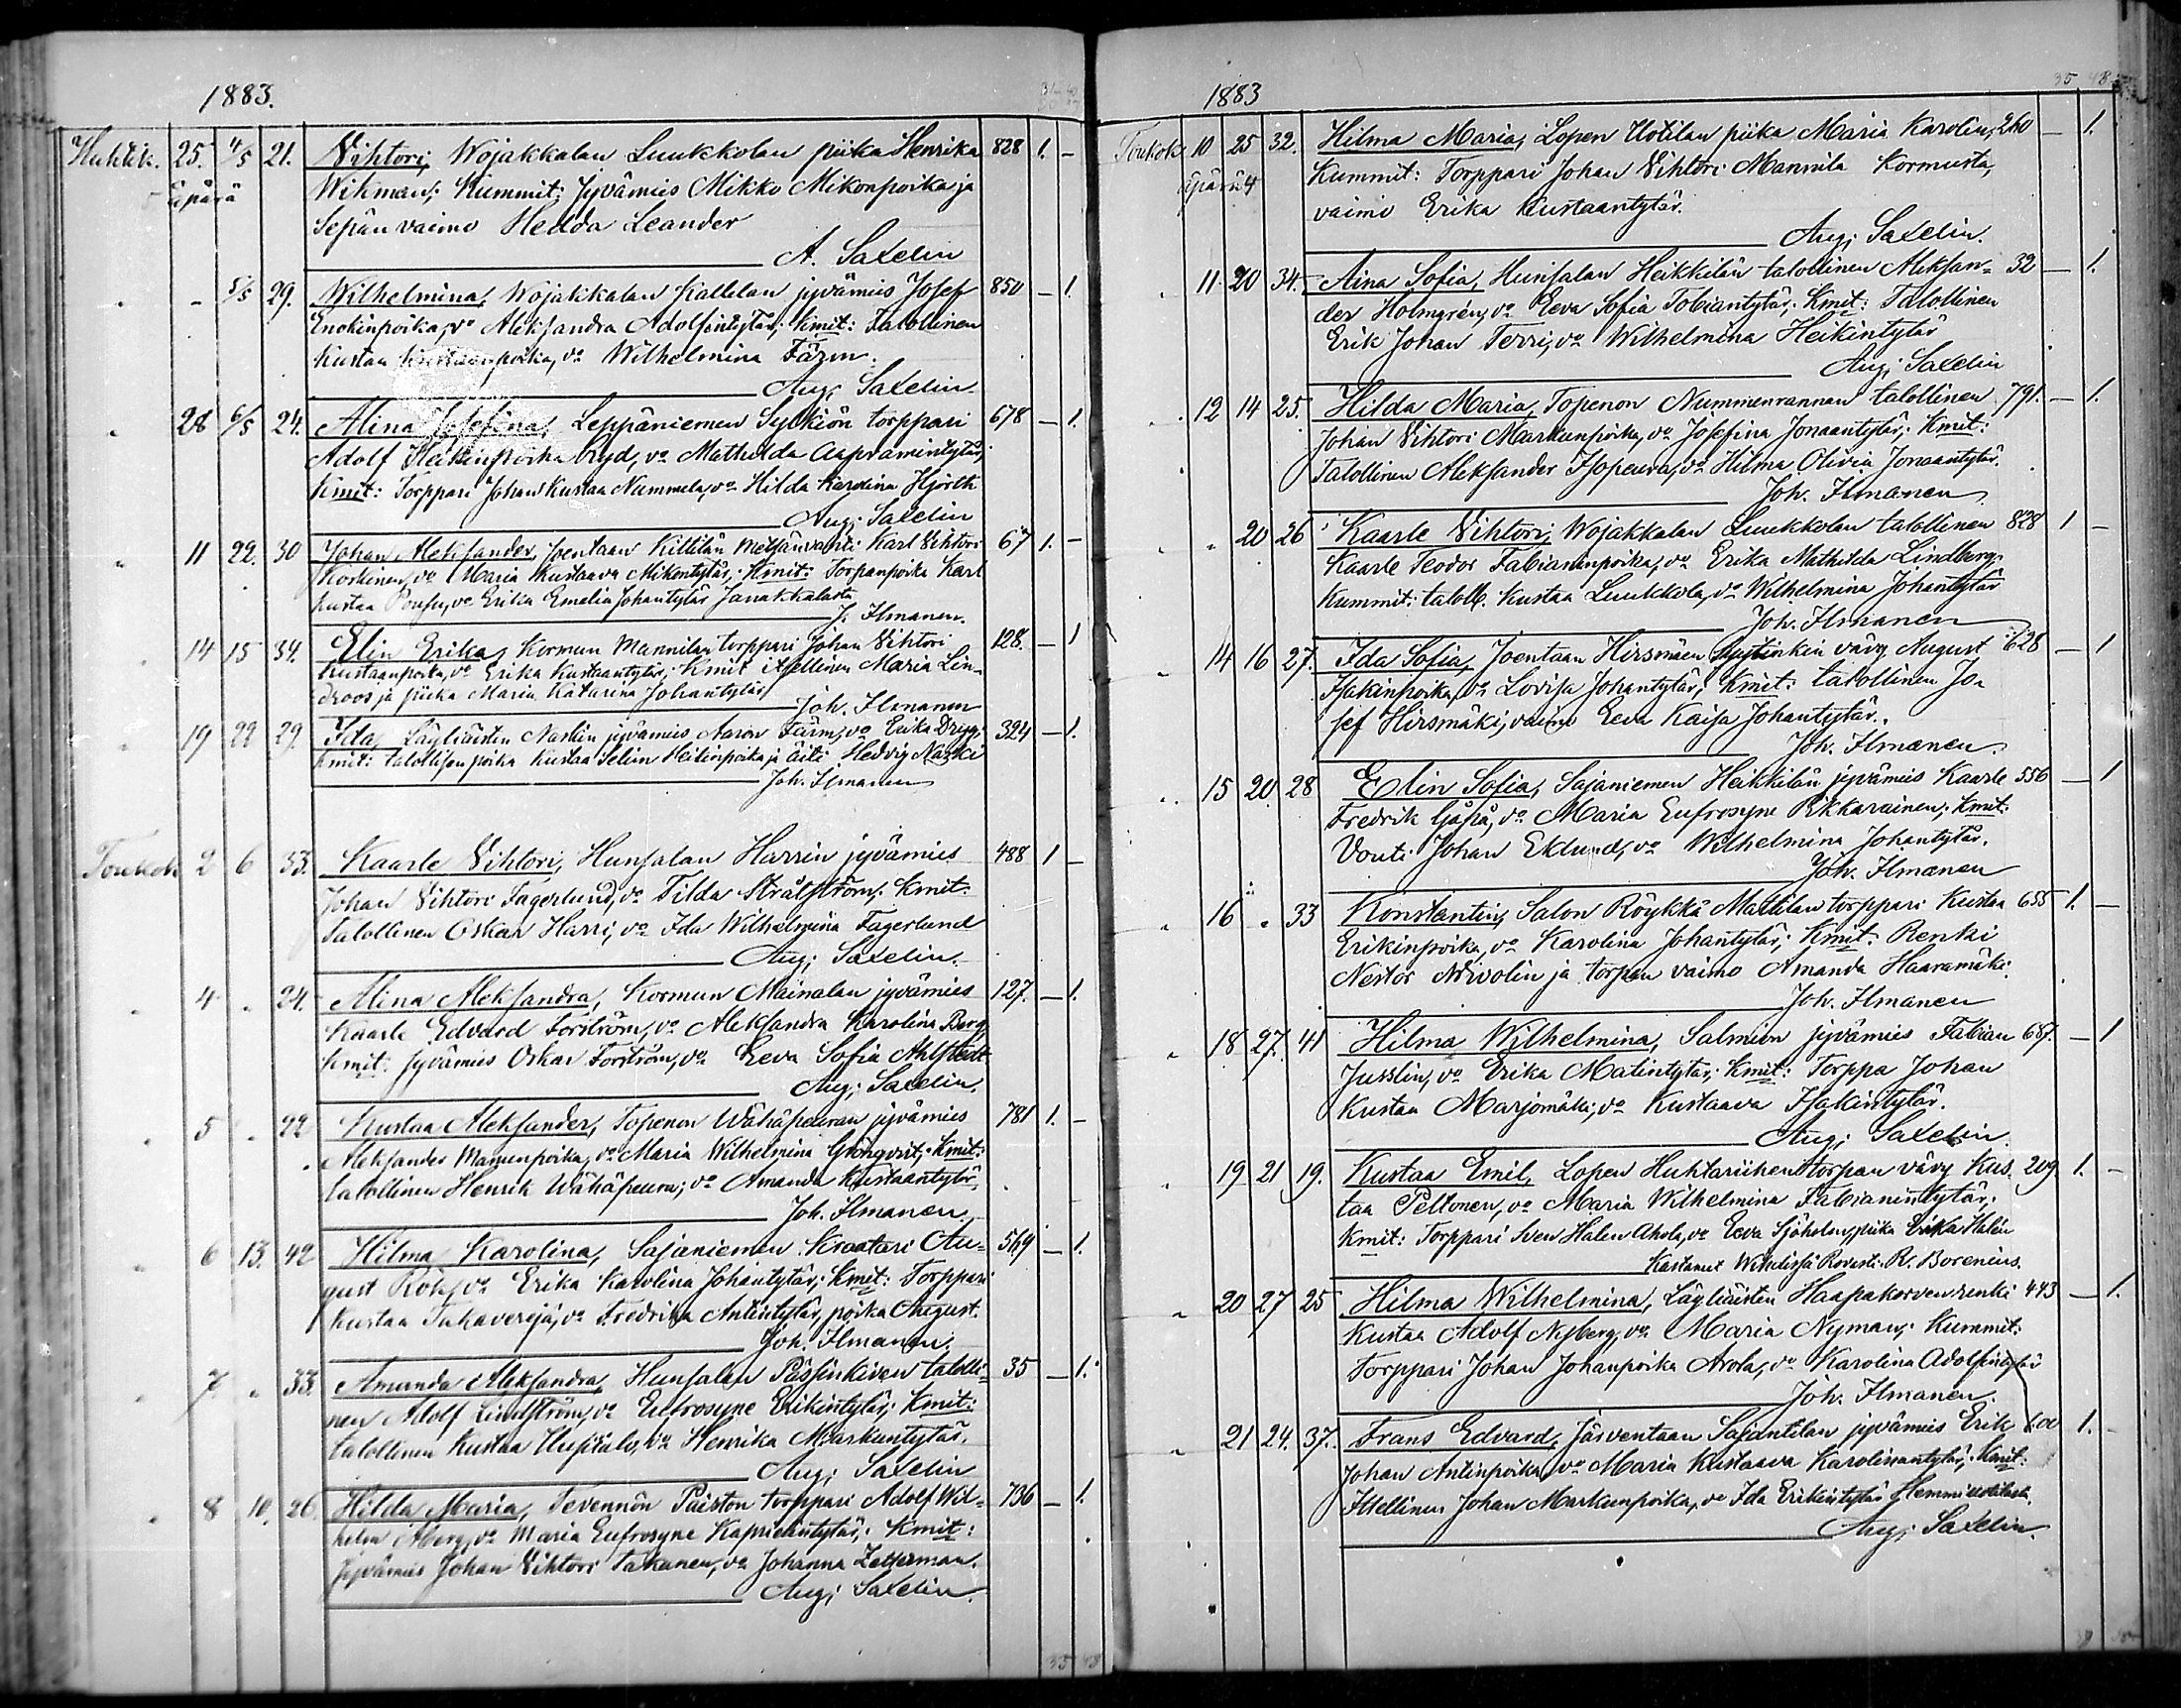 1883.
Huhtik. 25. 4/5 21. Vihtori, Wojakkalan Luukkolan piika Henrika 828 1. -
äpärä Wikman; Kummit: Jyvämies Mikko Mikonpoika ja
Sepän vaimo Hedda Leander
A. Saxelin
" - 5/5 29. Wilhelmina, Wojakkalan Kallelan jyvämies Josef 850 - 1.
Enokinpoika, vo Aleksandra Adolfintytär; Kmit: Talollinen
Kustaa Kustaanpoika, vo Wilhelmina Färm.
Aug. Saxelin
" 28 6/5 24. Alina Josefina, Leppäniemen Sylkiön torppari 678 - 1.
Adolf Heikinpoika Ryd, vo Mathilda Aapramintytär,
Kmit: Torppari Johan Kustaa Nummela, vo Hilda Karolina Hjorth
Aug. Saxelin
" 11 22. 30 Johan Aleksander, Joentaan Kittilän Metsänvahti Karl Vihtori 67 1. -
Koskinen, vo Maria Kustaava Mikontytär; Kmit: Torpanpoika Karl
Kustaa Pousu, vo Erika Emelia Johantytär Janakkalasta
J. Ilmanen.
" 14 15 34. Elin Erika, Kormun Mannilan torppari Johan Vihtori 128. - 1
Kustaanpoika, vo Erika Kustaantytär; Kmit itsellinen Maria Lin-
droos ja piika Maria Katarina Johantytär
Joh. Ilmanen
" 19 22 29. Ida, Läyliäisten Naskin jyvämies Aaron Färm, vo Erika Drygg; 324 - 1.
Kmit: talollisen poika Kustaa Selim Heikinpoika ja äiti Hedvig Naski
Joh. Ilmanen
Toukok 2 6 33. Kaarle Vihtori, Hunsalan Harrin jyvämies 488 1 -
Johan Vihtori Fagerlund, vo Tilda Strålström; Kmit:
Talollinen Oskar Harri, vo Ida Wilhelmina Fagerlund
Aug. Saxelin.
" 4 " 24. Alina Aleksandra, Kormun Mainalan jyvämies 127. - 1.
Kaarle Edvard Forström, vo Aleksandra Karolina Berg
Kmit: Jyvämies Oskar Forström, vo Eeva Sofia Ahlstedt
Aug. Saxelin.
" 5 " 22 Kustaa Aleksander, Topenon Wähäpeuran jyvämies 781 1. -
Aleksander Manunpoika, vo Maria Wilhelmina Grönqvist; Kmit:
talollinen Henrik Wähäpeura; vo Amanda Kustaantytär,
Joh. Ilmanen.
" 6 13. 42 Hilma Karolina, Sajaniemen Kraatari Au- 569 - 1.
gust Rök, vo Erika Karolina Johantytär; Kmit: Torppari
Kustaa Takaverejä, vo Fredrika Antintytär, poika August.
Joh. Ilmanen.
" 7 " 33. Amanda Aleksandra, Hunsalan Pässinkiven talolli- 35 - 1.
nen Adolf Lindström, vo Eufrosyne Erikintytär; Kmit:
talollinen Kustaa Uusitalo, vo Henrika Markuntytär.
Aug. Saxelin
" 8 10. 26. Hilda Maria, Tevennön Paiston torppari Adolf Wil- 736 - 1.
helm Åberg, vo Maria Eufrosyne Kaprielintytär; Kmit:
Jyvämies Johan Vihtori Takanen, vo Johanna Zetterman.
Aug. Saxelin
1883
Toukok 10 25 32. Hilma Maria, Lopen Uotilan piika Maria Karolina 260 - 1.
äpärä 4 Kummit: Torppari Johan Vihtori Mannila Kormusta,
vaimo Erika Kustaantytär.
Aug. Saxelin.
" 11. 20 34. Aina Sofia, Hunsalan Heikkilän talollinen Aleksan- 32 - 1.
der Holmgrén, vo Eeva Sofia Tobiantytär; Kmit: Talollinen
Erik Johan Terri, vo Wilhelmina Heikintytär
Aug. Saxelin
" 12 14 25. Hilda Maria, Topenon Nummenrannan talollinen 791. - 1.
Johan Vihtori Markunpoika, vo Josefina Jonaantytär; Kmit:
Talollinen Aleksander Isopeura, vo Hilma Olivia Jonaantytär.
Joh. Ilmanen
" " 20 26 Kaarle Vihtori, Wojakkalan Luukkolan talollinen 828 1 -
Kaarle Teodor Fabianinpoika, vo Erika Mathilda Lindberg.
Kummit: taloll. Kustaa Luukkola, vo Wilhelmina Johantytär
Joh. Ilmanen
" 14 16 27. Ida Sofia, Joentaan Hirsmäen vävy August 628 - 1
Isakinpoika, vo Lovisa Johantytär; Kmit: talollinen Jo-
sef Hirsmäki, vaimo Eeva Kaisa Johantytär.
Joh. Ilmanen
" 15 20. 28 Elin Sofia, Sajaniemen Heikkilän jyvämies Kaarle 556 - 1
Fredrik Gåpå, vo Maria Eufrosyne Pikkarainen; Kmit:
Vouti Johan Eklund, vo Wilhelmina Johantytär.
Joh. Ilmanen
" 16 " 33 Konstantin, Salon Röykkä Mattilan torppari Kustaa 655 1. -
Erikinpoika, vo Karolina Johantytär; Kmit: Renki
Nestor Arivolin ja torpan vaimo Amanda Haaramäki.
Joh. Ilmanen
" 18 27. 41 Hilma Wilhelmina, Salmion jyvämies Fabian 687. - 1
Jusslin, vo Erika Matintytär; Kmit: Torppa Johan
Kustaa Marjomäki, vo Kustaava Isakintytär.
Aug. Saxelin.
" 19 21 19. Kustaa Emil, Lopen Huhtariihen torpan vävy Kus- 209. 1. -
taa Peltonen, vo Maria Wilhelmina Fabianintytär;
Kmit: Torppari Sven Halen Ahola, vo Eeva Sjöholm, piika Erika Halén
Kastanut Wihdissä Rovasti R. Borenius.
" 20 27 25 Hilma Wilhelmina, Läyliäisten Haapakorven renki 443 - 1.
Kustaa Adolf Nyberg, vo Maria Nyman; Kummit:
Torppari Johan Johanpoika Arola, vo Karolina Adolfintytär
Joh. Ilmanen.
" 21 24. 37. Frans Edvard, Järventaan Sajantilan jyvämies Erik 600 1. -
Johan Antinpoika, vo Maria Kustaava Karolinantytär; Kmit:
Itsellinen Johan Markunpoika, vo Ida Erikintytär
Aug. Saxelin.